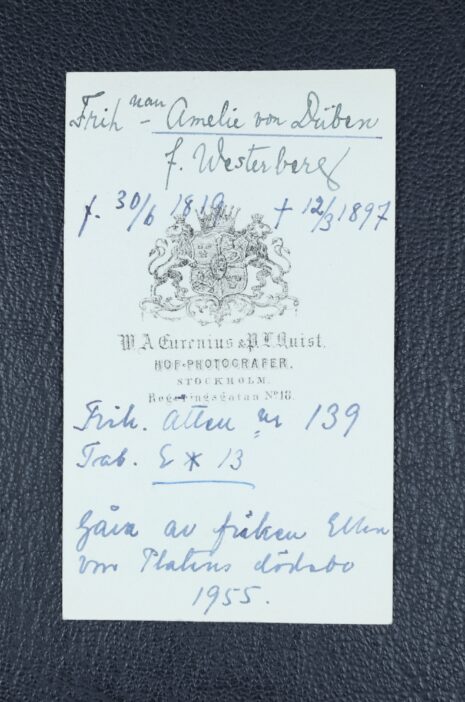 Frih nan - Amelie von Düben
f. Westerberg
f. 30/6 1819 † 12/3 1897
W. A. Eurenius & P. L. Quist.
HOF-PHOTOGRAFER.
STOCKHOLM.
Regeringsgatan No 18.
Frih. ätten nr 139
Tab. E * 13
Gåva av fröken Ellen
von Platens dödsbo
1955.